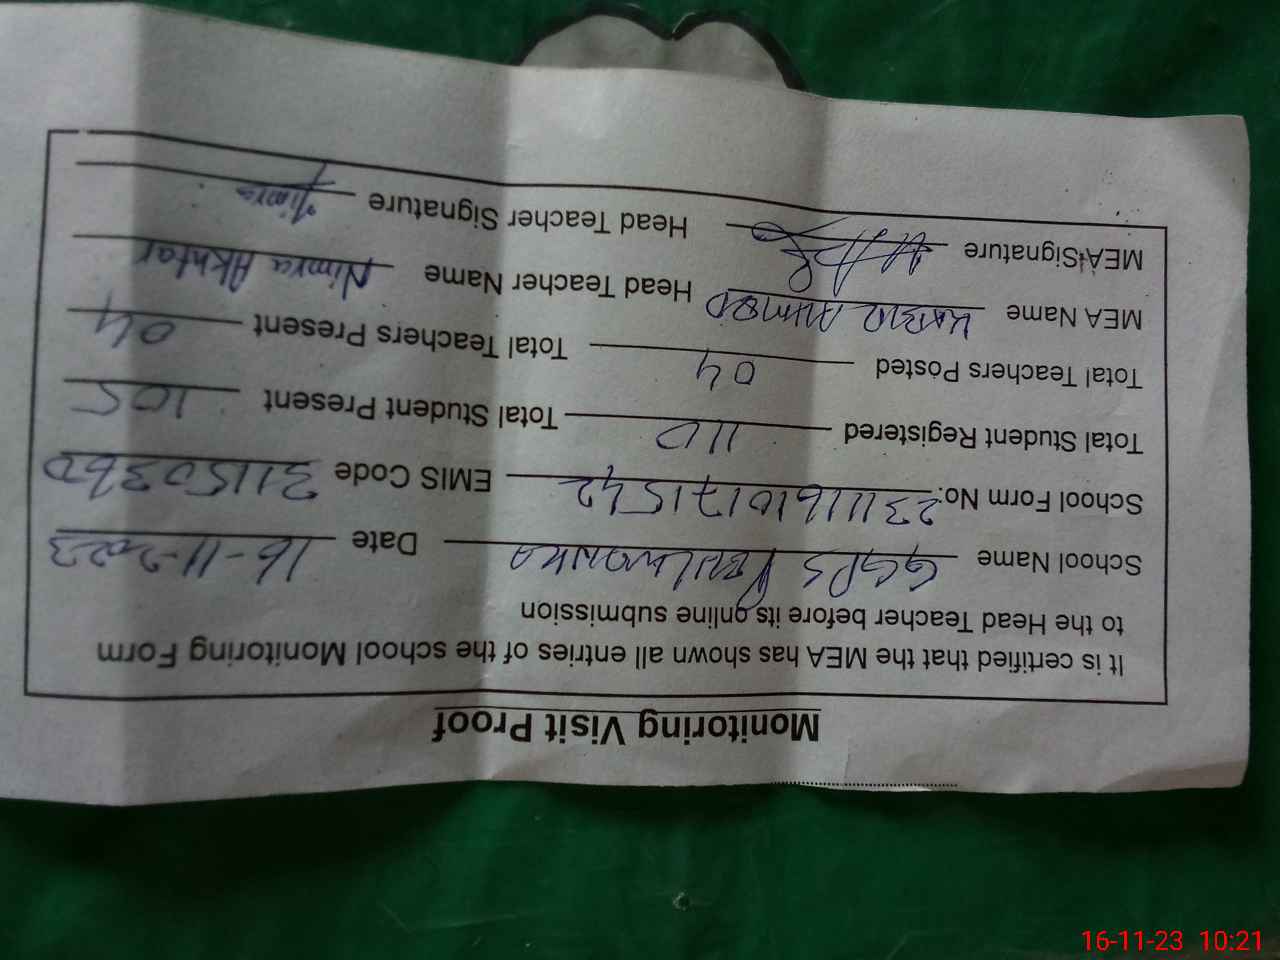 Monitoring Visit Proof
It is certified that the MEA has shown all entries of the school Monitoring Form
to the Head Teacher before its online submission
School Name GGPS Date 16-11-2023
School Form No. 23111610171542 EMIS Code 31150360
Total Student Registered 110 Total Student Present 105
Total Teachers Posted 04 Total Teachers Present 04
MEA Name AHMED Head Teacher Name Nimra Akhtar
MEA Signature Head Teacher Signature Nimra
16-11-23 10:21